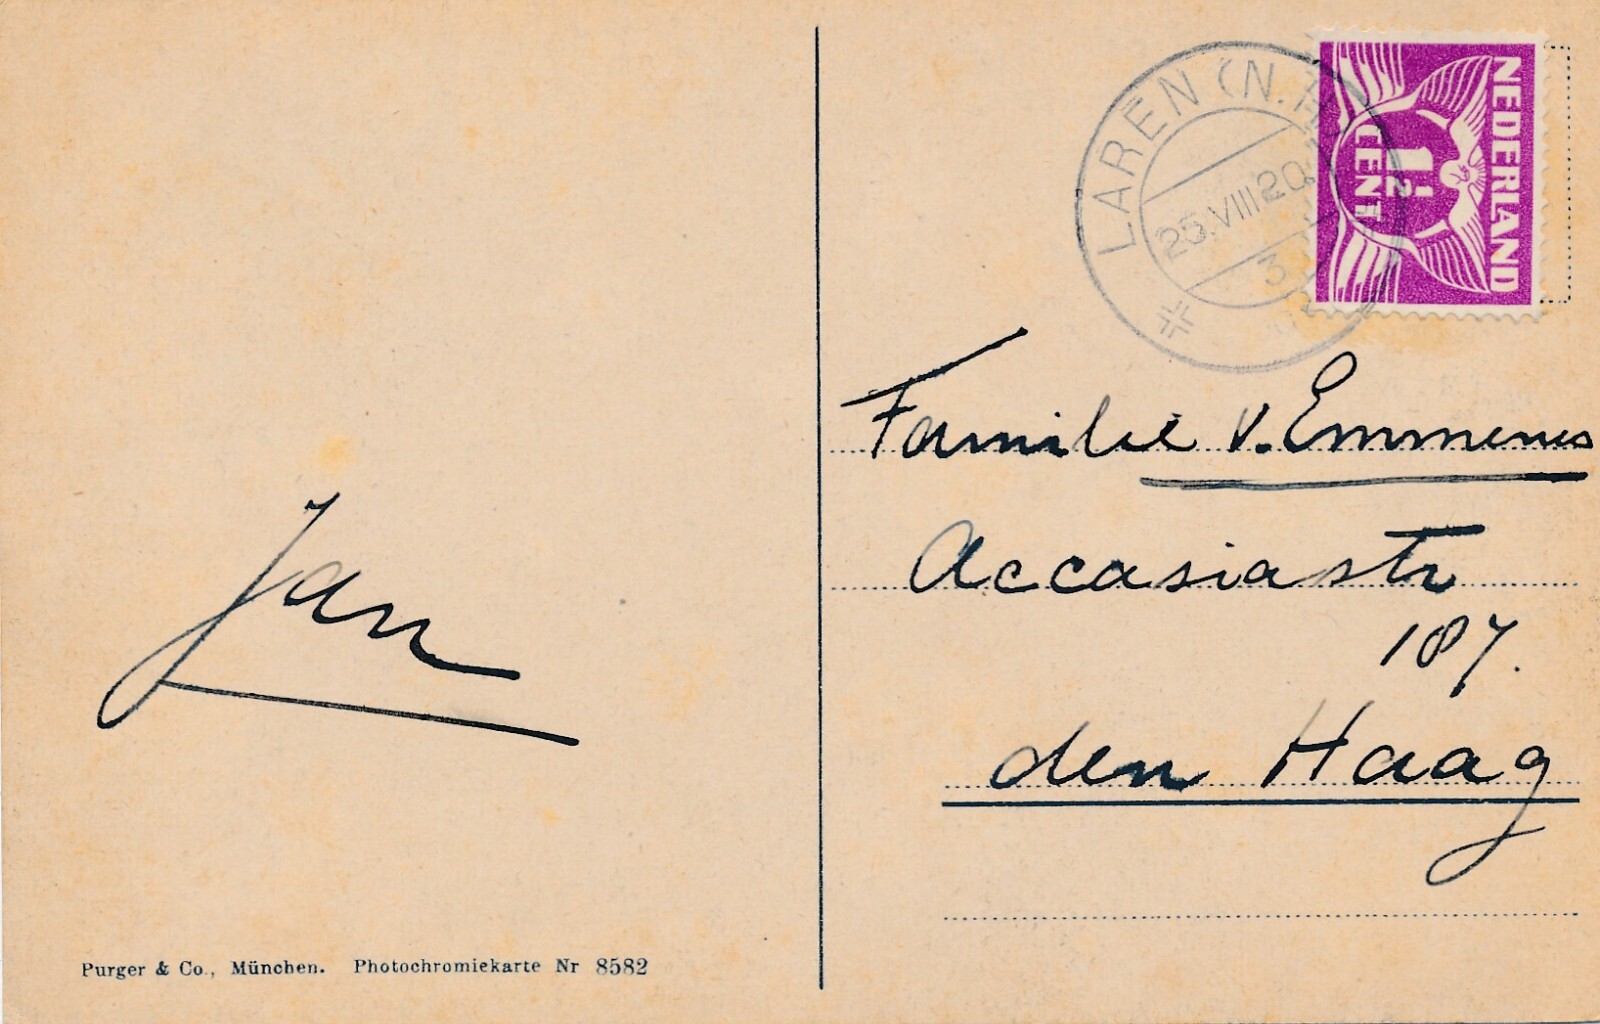 NEDERLAND
1½
CENT
LAREN (N.H
25.VIII 20
3
Familie v. Emmenes
Accasiastr
187.
den Haag
Jan
Purger & Co., München. Photochromiekarte Nr 8582